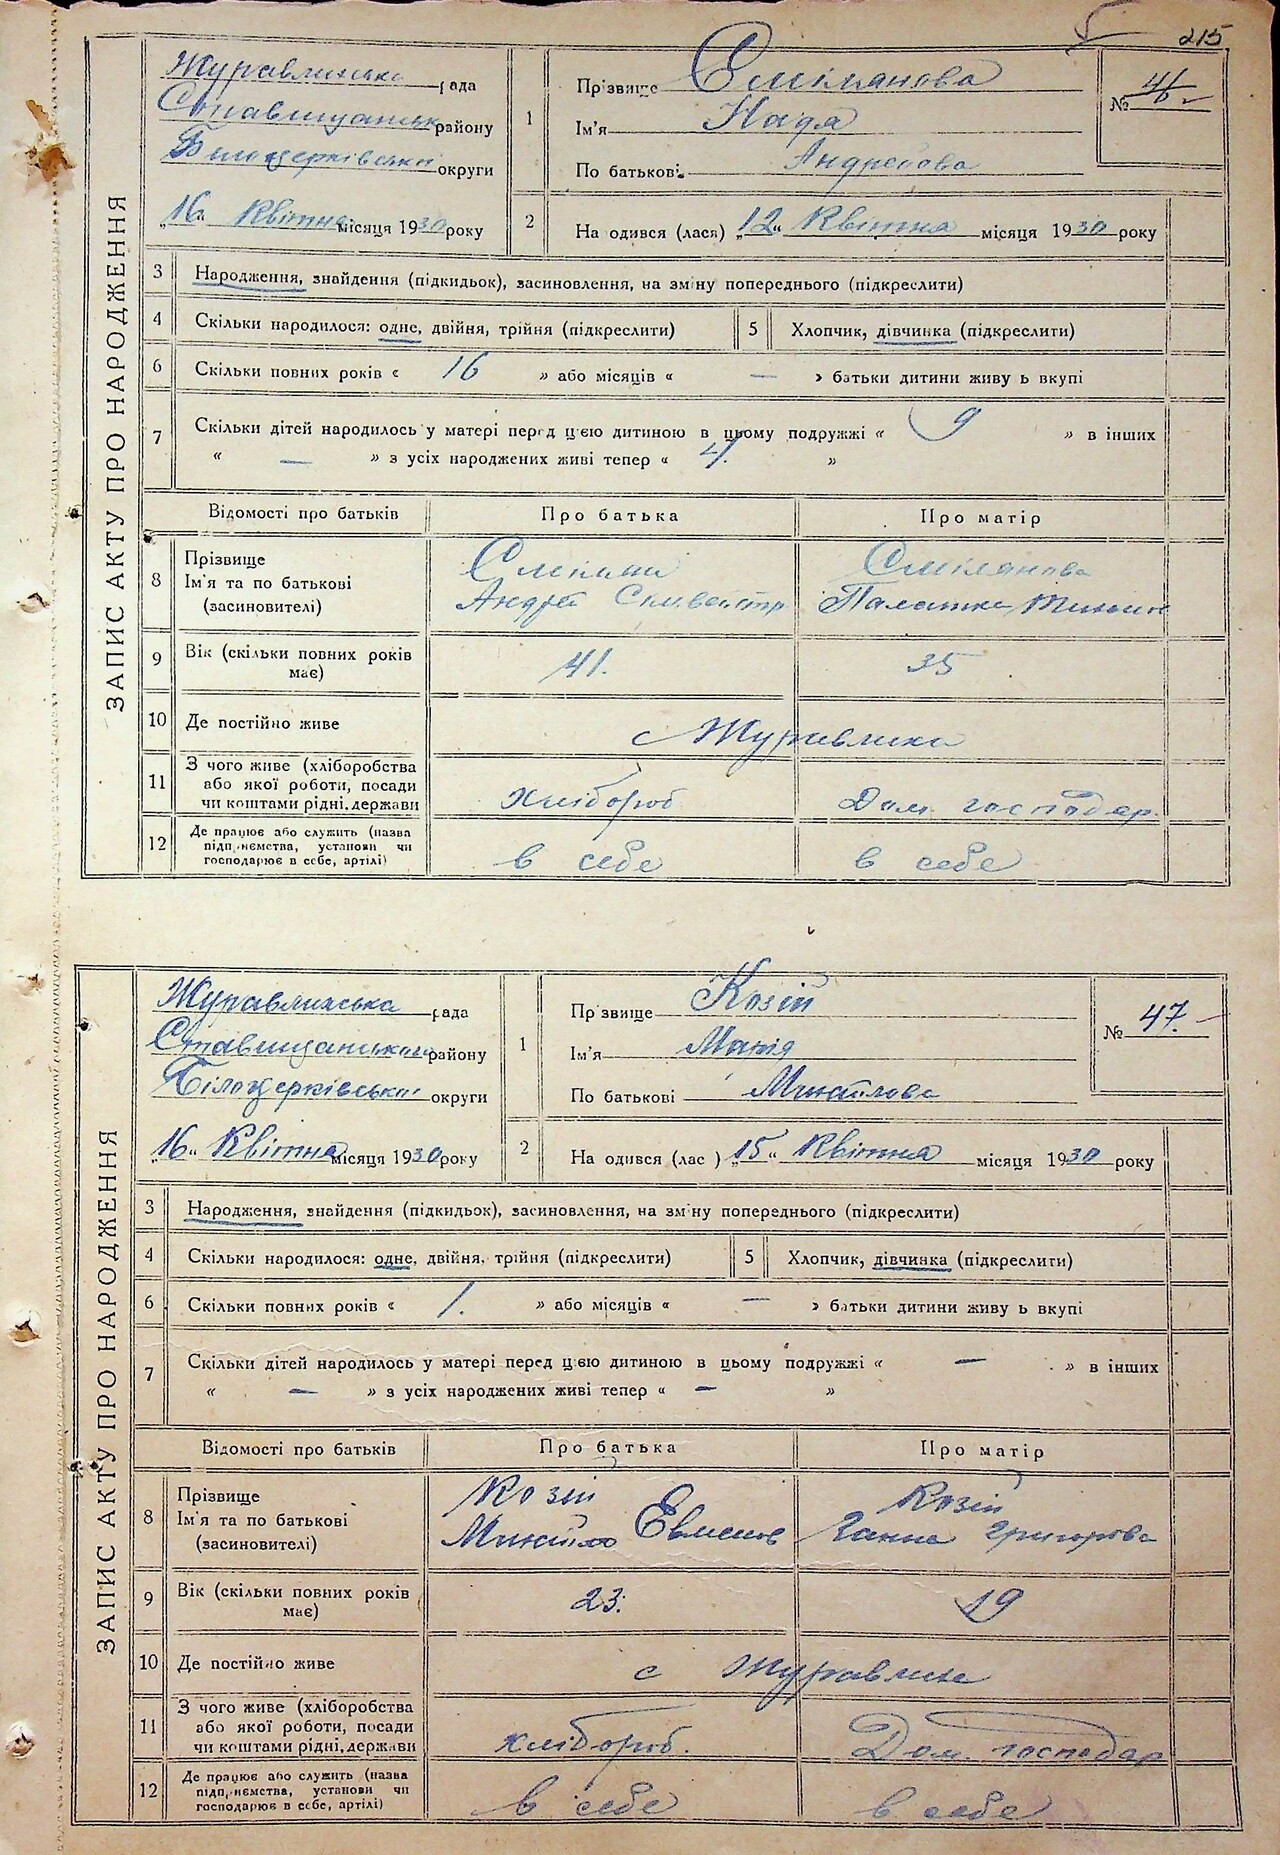 215
ЗАПИС АКТУ ПРО НАРОДЖЕННЯ
Журавлинська рада
Ставищанськ району
Білоцерківськи округи
„16“ Квітня місяця 1930 року
1
Прізвище Смілянова
Ім'я Надя
По батькові Андреєова
№ 46
2
На одився (лася) „12“ Квітня місяця 1930 року
3 Народження, знайдення (підкидьок), засиновлення, на зміну попереднього (підкреслити)
4 Скільки народилося: одне, двійня, трійня (підкреслити) 5 Хлопчик, дівчинка (підкреслити)
6 Скільки повних років « 16 » або місяців « — » батьки дитини живу ь вкупі
7 Скільки дітей народилось у матері перед цією дитиною в цьому подружжі « 9 » в інших
« — » з усіх народжених живі тепер « 4. »
Відомості про батьків Про батька Про матір
8 Прізвище
Ім'я та по батькові
(засиновителі)
Андрій Сильвестр
Смілянова
9 Вік (скільки повних років має) 41. 35
10 Де постійно живе с Журавлиха
11 З чого живе (хліборобства або якої роботи, посади чи коштами рідні, держави хлібороб Дом. господар.
12 Де працює або служить (назва підприємства, установи чи господарює в себе, артілі) в себе в себе
ЗАПИС АКТУ ПРО НАРОДЖЕННЯ
Журавлинська рада
Ставищанського району
Білоцерківської округи
„16“ Квітня місяця 1930 року
1
Прізвище Козій
Ім'я Марія
По батькові Михайлова
№ 47.
2
На одився (лас ) „15“ Квітня місяця 1930 року
3 Народження, знайдення (підкидьок), засиновлення, на зміну попереднього (підкреслити)
4 Скільки народилося: одне, двійня, трійня (підкреслити) 5 Хлопчик, дівчинка (підкреслити)
6 Скільки повних років « 1. » або місяців « — » батьки дитини живу ь вкупі
7 Скільки дітей народилось у матері перед цією дитиною в цьому подружжі « — » в інших
« — » з усіх народжених живі тепер « — »
Відомості про батьків Про батька Про матір
8 Прізвище
Ім'я та по батькові
(засиновителі)
Козій
Михайло Евменов
Козій
Ганна Григорова
9 Вік (скільки повних років має) 23. 19
10 Де постійно живе с Журавлиха
11 З чого живе (хліборобства або якої роботи, посади чи коштами рідні, держави хлібороб. Дом. господар
12 Де працює або служить (назва підприємства, установи чи господарює в себе, артілі) в себе в себе